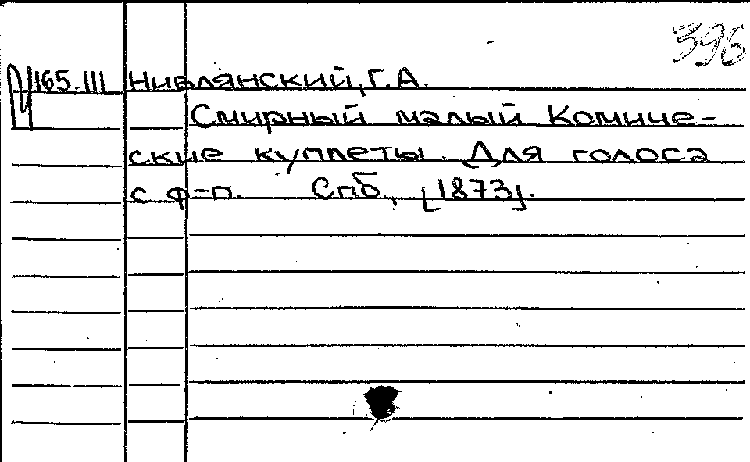 396
165.III Нивлянский, Г.А.
Смирный малый Комиче-
ские куплеты. Для голоса
с ф-п. Спб, [1873].